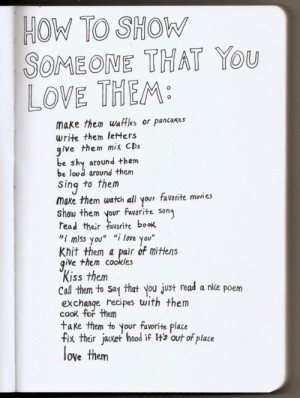 HOW TO SHOW
SOMEONE THAT YOU
LOVE THEM:
make them waffles or pancakes
write them letters
give them mix CDs
be shy around them
be loud around them
sing to them
make them watch all your favorite movies
show them your favorite song
read their favorite book
"i miss you" "i love you"
knit them a pair of mittens
give them cookies
kiss them
call them to say that you just read a nice poem
exchange recipes with them
cook for them
take them to your favorite place
fix their jacket hood if it's out of place
love them